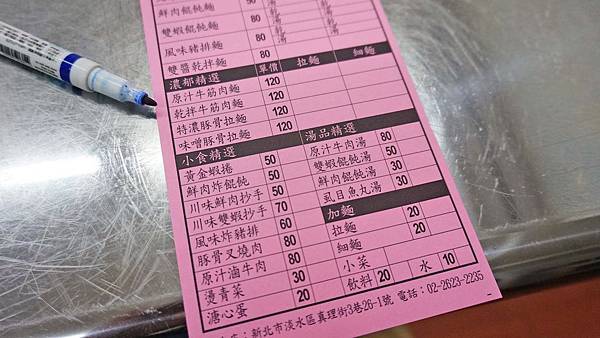 鮮肉餛飩麵
雙蝦餛飩麵 80
風味豬排麵 80
雙醬乾拌麵 80
濃郁精選 單價 拉麵 細麵
原汁牛筋肉麵 120
乾拌牛筋肉麵 120
特濃豚骨拉麵 120
味噌豚骨拉麵 120
小食精選
黃金蝦捲 50
鮮肉炸餛飩 50
川味鮮肉抄手 50
川味雙蝦抄手 70
風味炸豬排 60
豚骨叉燒肉 80
原汁滷牛肉 80
燙青菜 30
溏心蛋 20
湯品精選
原汁牛肉湯 80
雙蝦餛飩湯 50
鮮肉餛飩湯 30
虱目魚丸湯 30
加麵
拉麵 20
細麵 20
小菜
飲料 20 水 10
新北市淡水區真理街3巷26-1號 電話：02-2623-2235